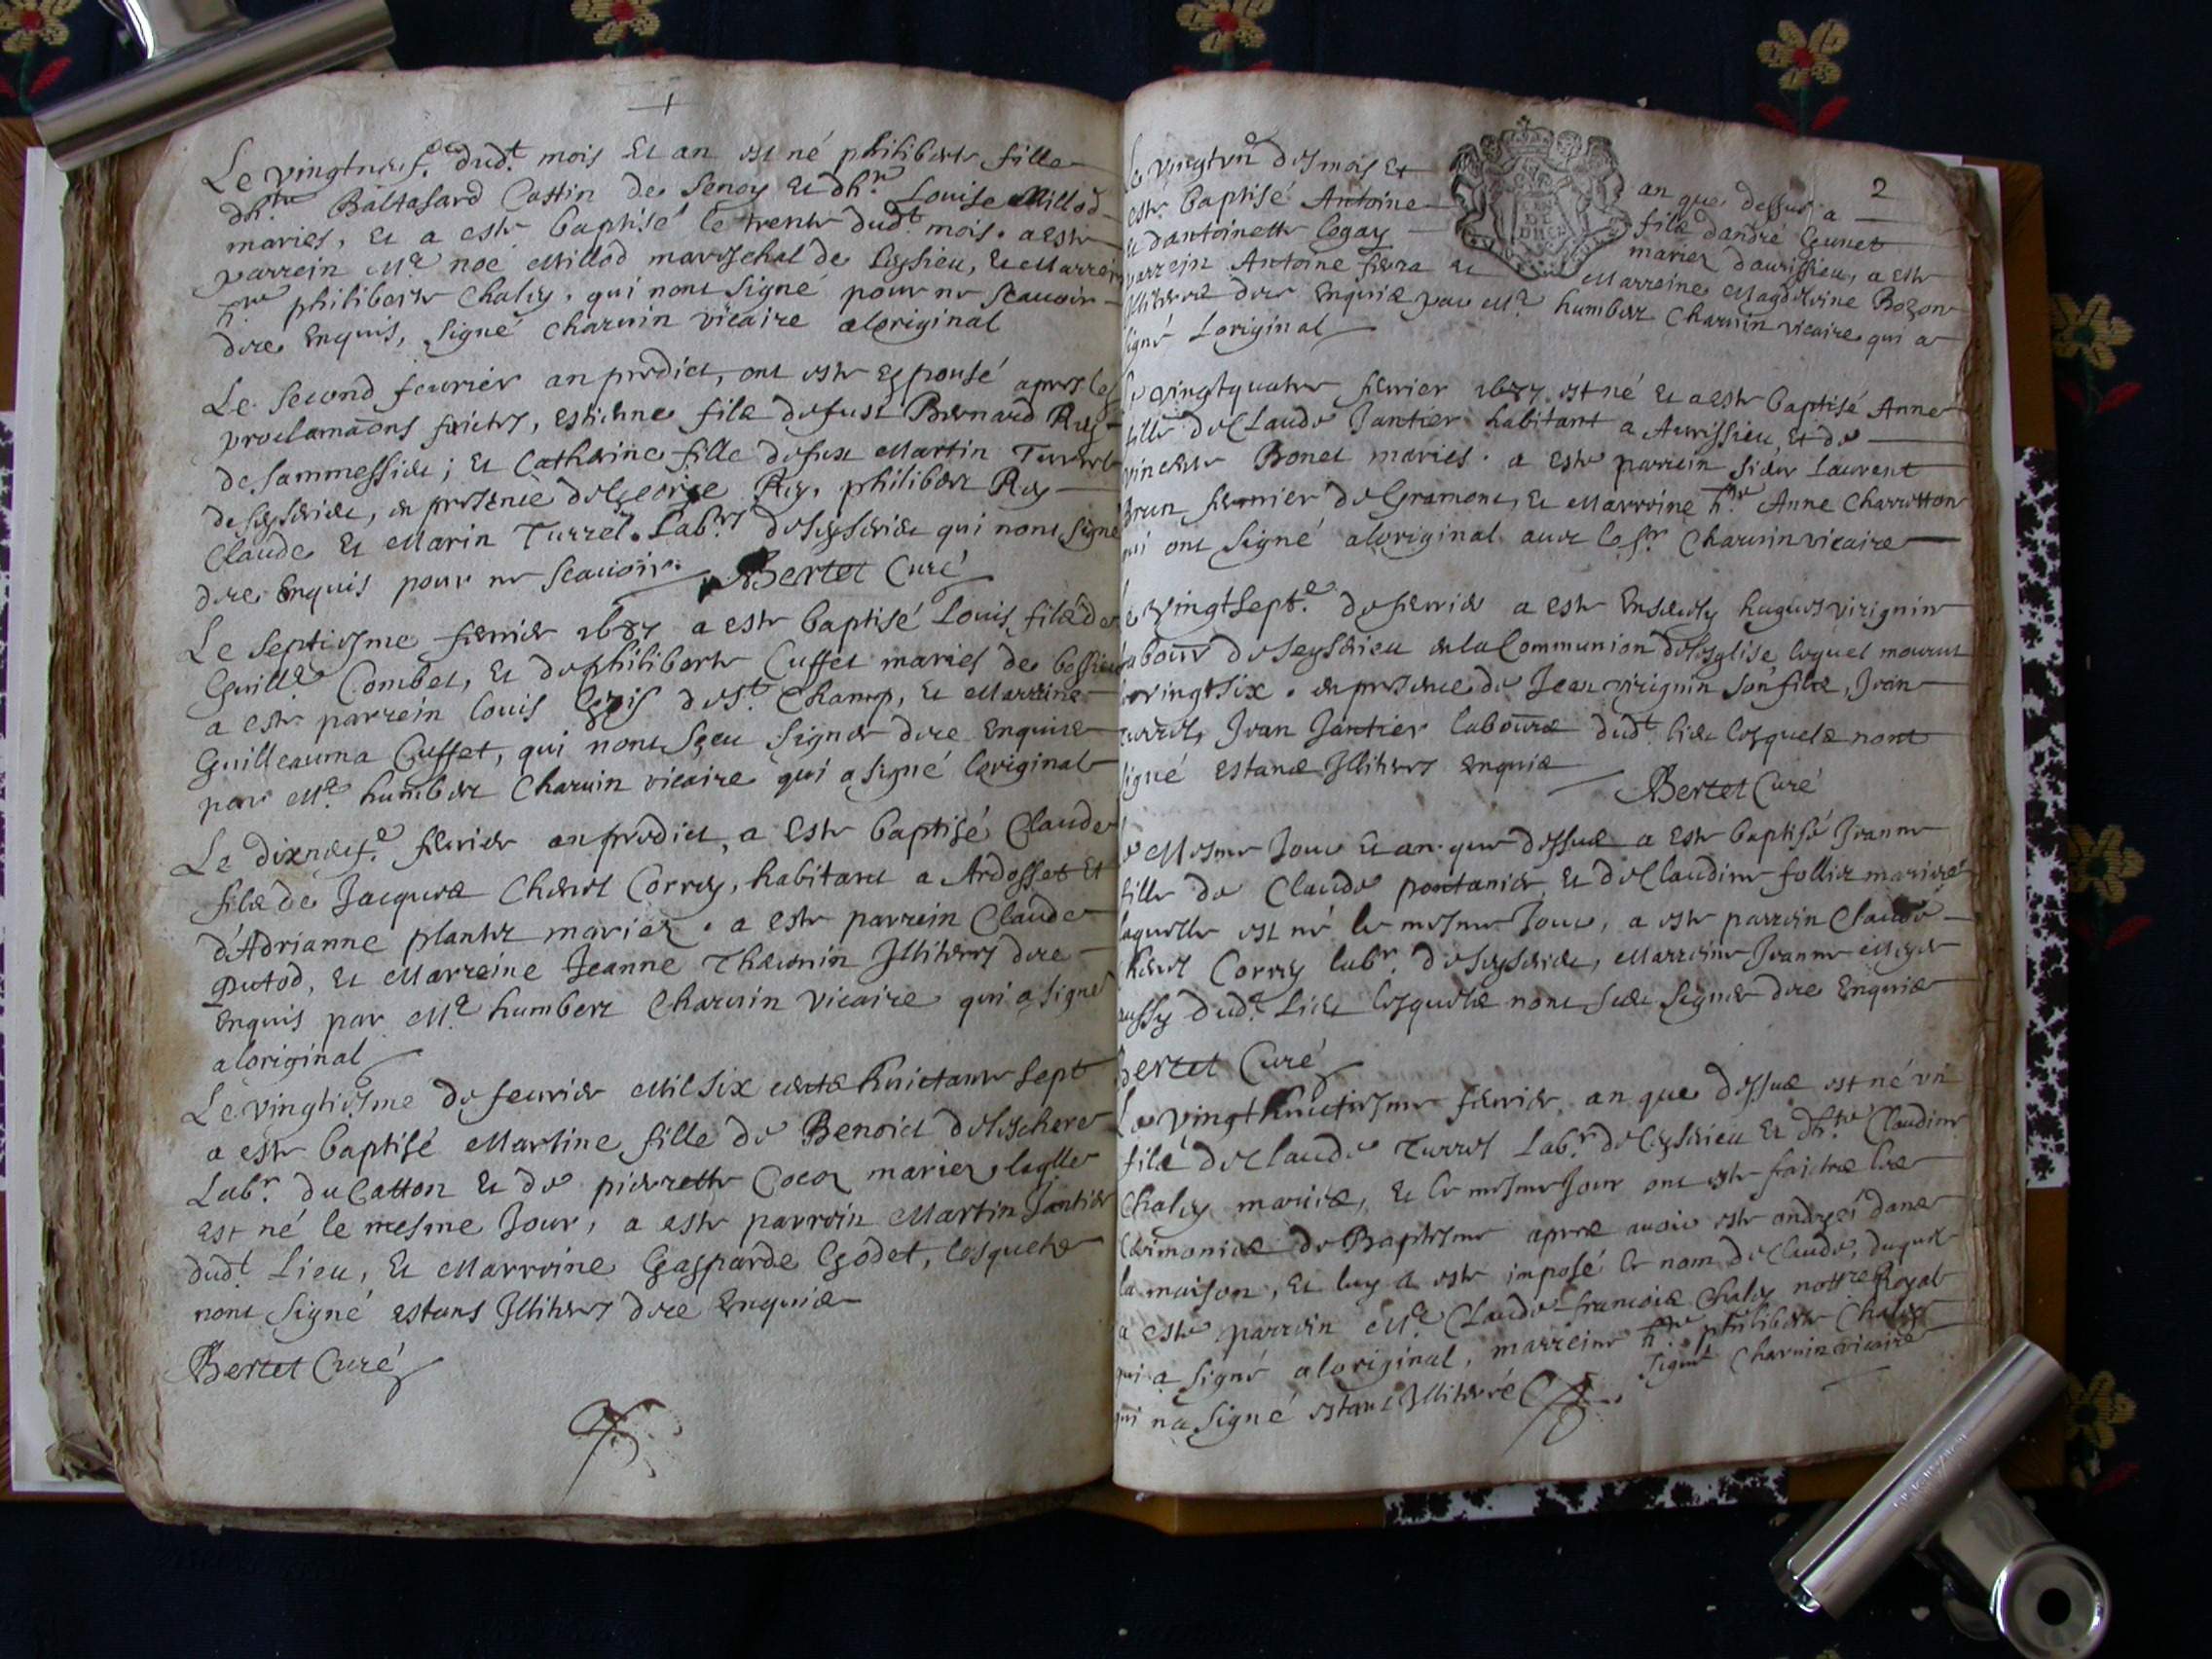 Le vingtneuf.e dud.t mois et an est né philiberte fille
Baltasard Cattin de Senoy et Louise Millod
maries, et a este baptisé le trente dud.t mois. a este
parrein M.e noé Millod mareschal de et Marreine
philiberte Chaley, qui n'ont signe pour ne scauoir
dere enquis, signé Charuin vicaire aloriginal
Le second feurier an predict, ont este espousé apres les
proclamaons faictes, estienne filz defust Bernard Rey
de Sammessieu; et Catherine fille defust Martin Turrel
de en presence de George Rey, philibert Rey
Claude et Marin Turrel. Lab.rs de qui nont signé
dere enquis pour ne scauoir. Bertet Curé
Le septiesme feurier 1687 a este baptisé Louis, filz de
Guill.e Combet, et de philiberte Cuffet maries de
a este parrein louis de S.t Champ, et Marreine
Guilleauma Cuffet, qui nont sçeu signer dere enquis
par M.e humbert Charuin vicaire qui a signé loriginal
Le dixneuf.e feurier an predict, a este baptisé Claude
filz de Jacques Correy, habitant a Ardosset et
d'Adrianne plantez mariez. a este parrein Claude
Putod, et Marreine Jeanne Theuenin Illiteres dere
enquis par M.e humbert Charuin vicaire qui a signé
aloriginal
Le vingtiesme de feurier Mil six centz huictante sept
a este baptisé Martine fille de Benoict
Lab.r du Catton et de pierrette Cocoz mariez, laqlle
est né le mesme Jour, a este parrein Martin Jantier
dud.t Lieu, et Marreine Gasparde Godet, lesquelz
nont signé estans Illiteres dere enquis
Bertet Curé
2
le vingtvn.e des mois et an que dessus a
este baptisé Antoine filz dandré Gunet
et dantoinette legay mariez daurissieu, a este
parrein Antoine et Marreine Magdeleine Bozon
Illiteres dere enquis par M.e humbert Charuin vicaire qui a
signé loriginal
le vingtquatre feurier 1687. est né et a este baptisé Anne
fille de Claude Jantier habitant a Aurissieu et de
vincente Bonet maries. a este parrein sieur Laurent
Brun fermier de Gramont, et Marreine Anne Charretton
qui ont signé aloriginal auec le s.r Charuin vicaire
le vingtsept.e de feurier a este enseuely hugues virignin
labour de Seyssieu en la Communion de lesglise, lequel mourut
le vingtsix. en presence de Jean virignin son filz, Jean
Turrel, Jean Jantier laboure dud.t lieu lesquelz nont
signé estans Illiteres enquis Bertet Curé
le Mesme Jour et an que dessus a este baptisé Jeanne
fille de Claude pontanier et de Claudine follier maries
laquelle est né le mesme Jour, a este parrein Claude
Correy lab.r de Marreine Jeanne
aussy dud.t lieu lesquelz nont sceu signer dere enquis
Bertet Curé
Le vingthuictiesme feurier an que dessus est né vn
filz de Claude Turrel Lab.r de et Claudine
Chaley maries, et le mesme Jour ont este faictes les
Cerimonies de Baptesme apres auoir este ondoyé dans
la maison, et luy a este imposé le nom de Claude, duquel
a este parrein M.e Claude francois Chaley nottre Royal
qui a signé aloriginal, marreine philiberte Chaley
qui na signé estant Illiteré signé Charuin vicaire